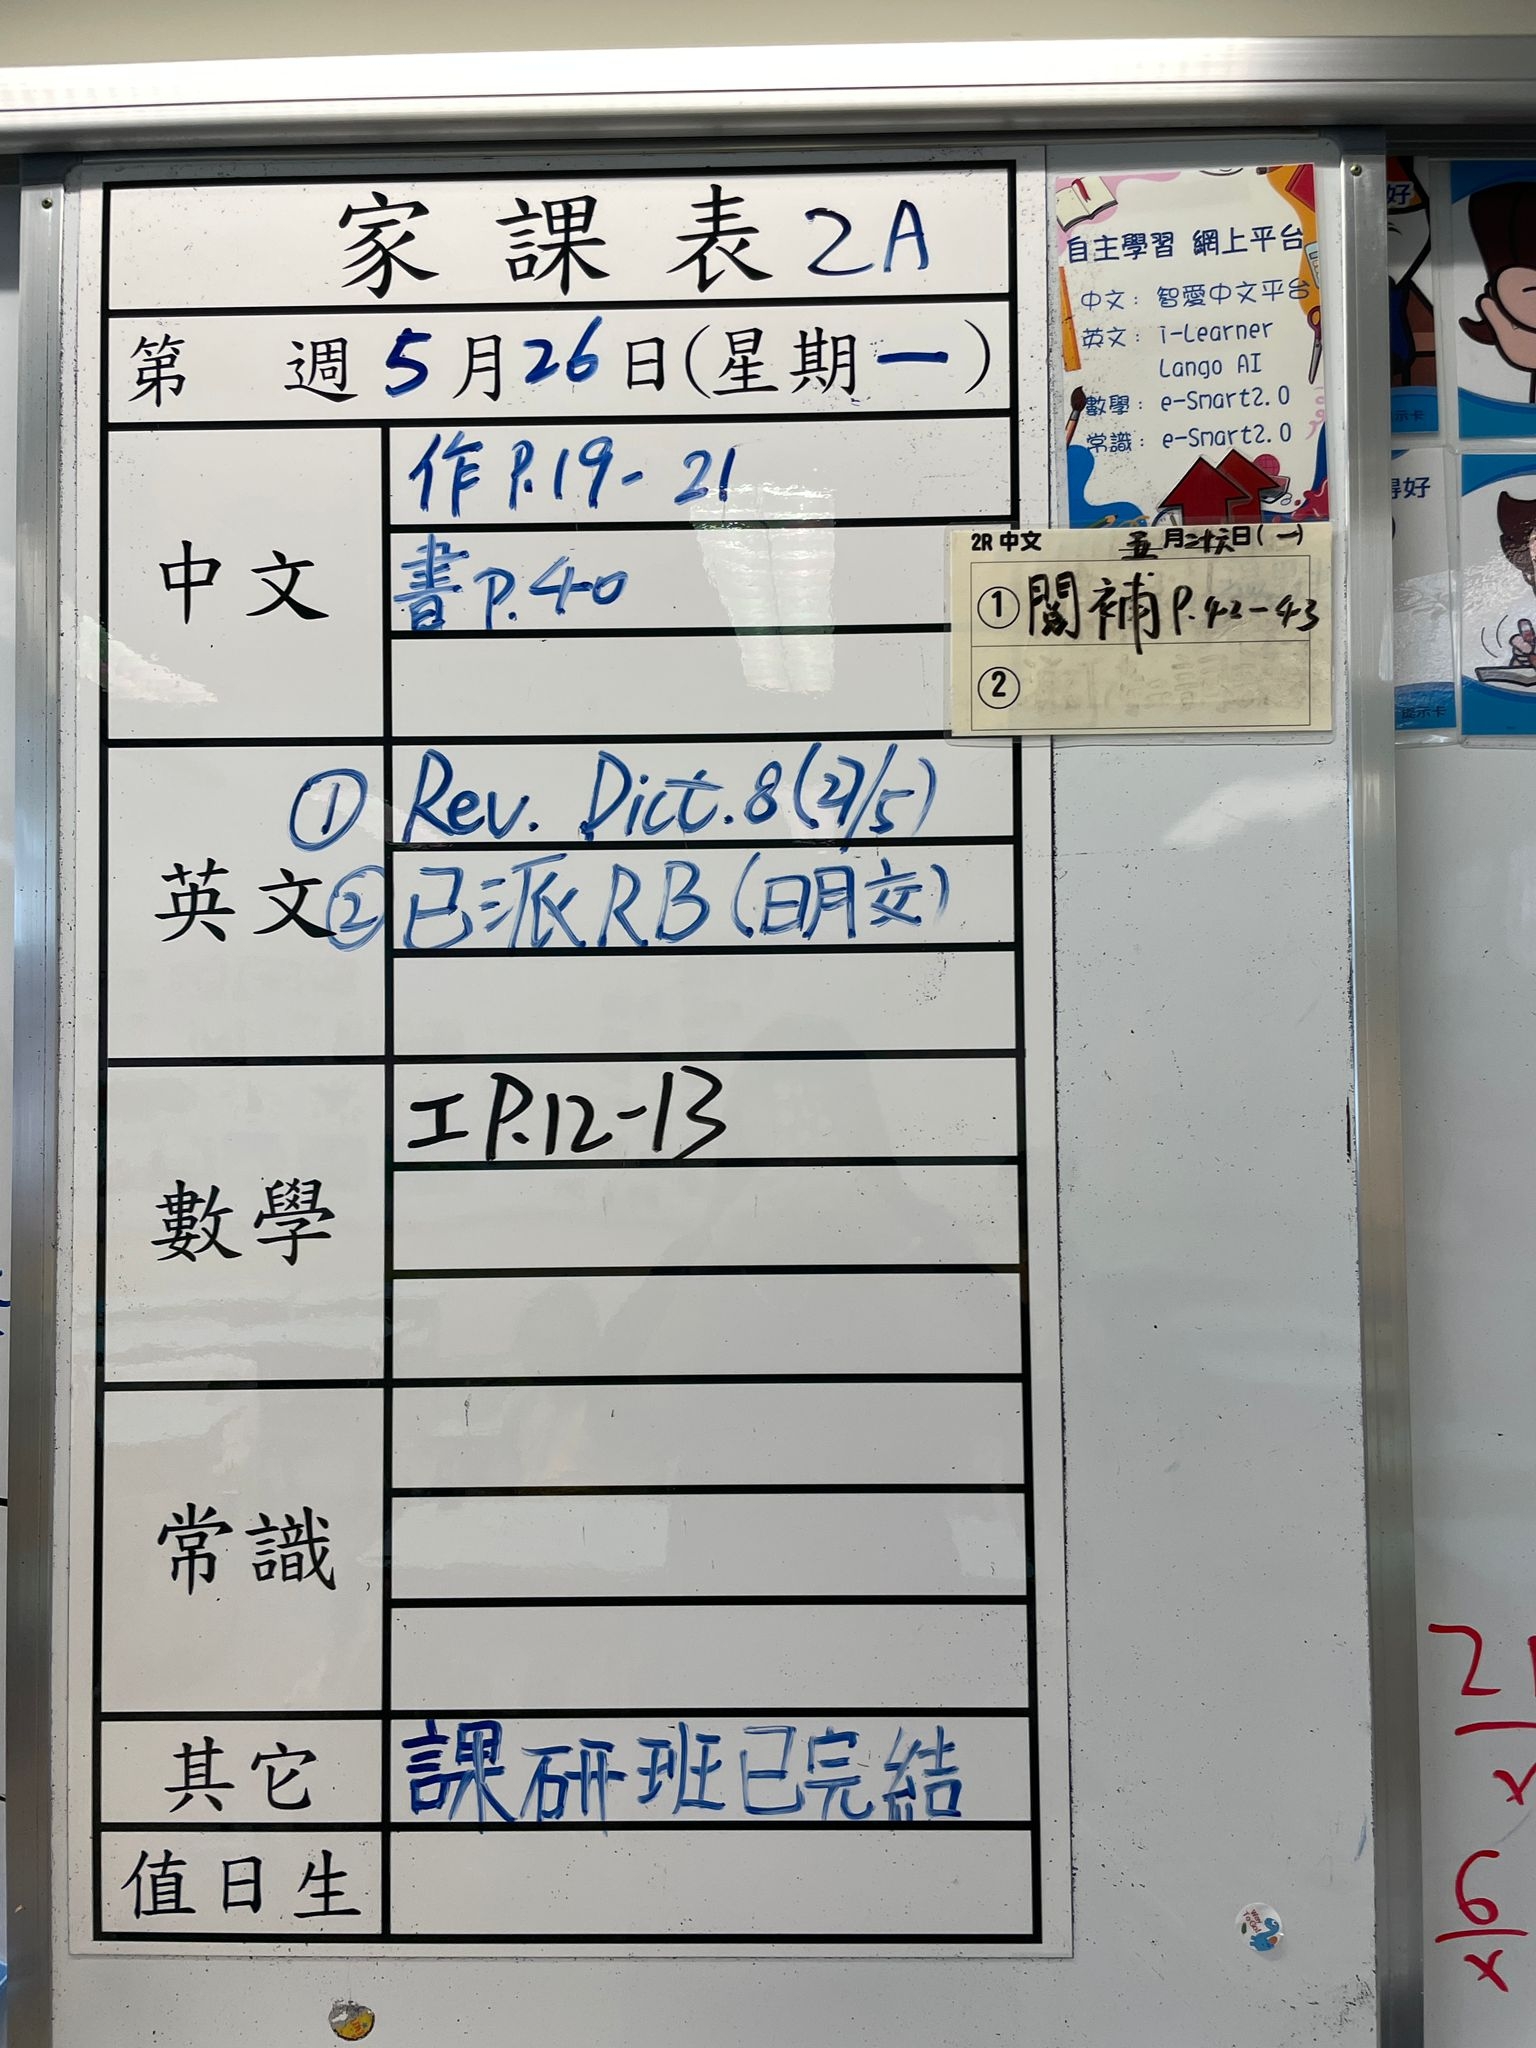 家課表 2A
第 週 5月26日(星期一)
中文
作 P.19-21
書 P.40
英文
① Rev. Dict. 8 (27/5)
② 已派RB(明交)
數學
工 P.12-13
常識
其它
課研班已完結
值日生
自主學習 網上平台
中文: 智愛中文平台
英文: i-Learner
Lango AI
數學: e-Smart2.0
常識: e-Smart2.0
2R 中文 五月二十六日(一)
① 閱補 P.42-43
②
好
示卡
得好
提示卡
2
x
6
x